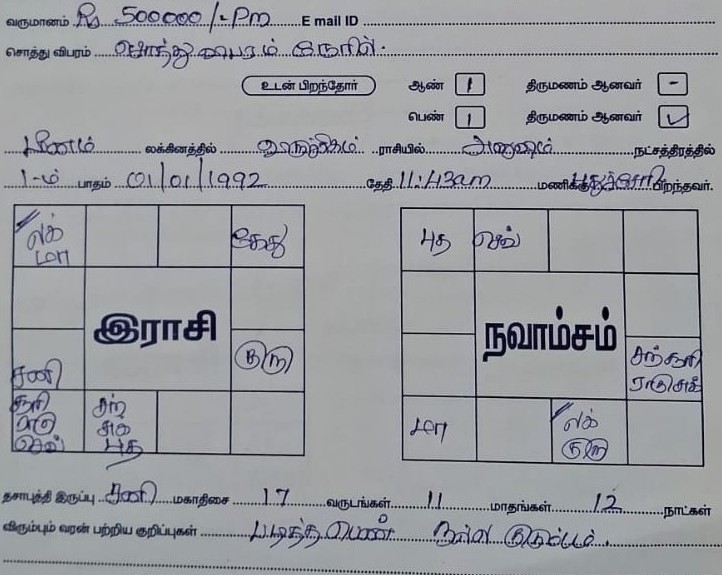 வருமானம் Rs 500000/-Pm E mail ID
சொத்து விபரம் சொத்து விபரம் நேரில்.
உடன் பிறந்தோர் ஆண் 1 திருமணம் ஆனவர் -
பெண் 1 திருமணம் ஆனவர் ✓
மீனம் லக்கினத்தில் விருச்சிகம் ராசியில் அனுஷம் நட்சத்திரத்தில்
1-ம் பாதம் 01/01/1992 தேதி 11:43am மணிக்கு புதுச்சேரி பிறந்தவர்.
லக் மா கேது புத செவ்
இராசி நவாம்சம்
சனி குரு சந் சூரி ராகு சுக்
சூரி ராகு செவ் சந் சுக் புத மா லக் குரு
தசாபுத்தி இருப்பு சனி மகாதிசை 17 வருடங்கள் 11 மாதங்கள் 12 நாட்கள்
விரும்பும் வரன் பற்றிய குறிப்புகள் படித்த பெண் நல்ல குடும்பம்.